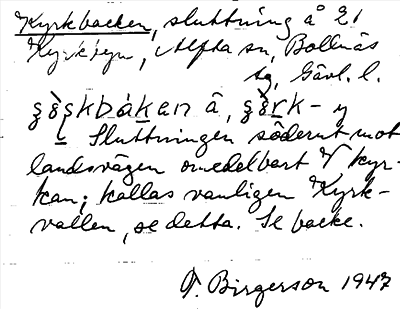 Kyrkbacken, sluttning å 21
Kyrkbyn, Alfta sn, Bollnäs
tg, Gävl. l.
kbaken å,
Sluttningen söderut mot
landsvägen omedelbart V kyr-
kan; kallas vanligen Kyrk-
vallen, se detta. Se backe.
F. Birgerson 1947